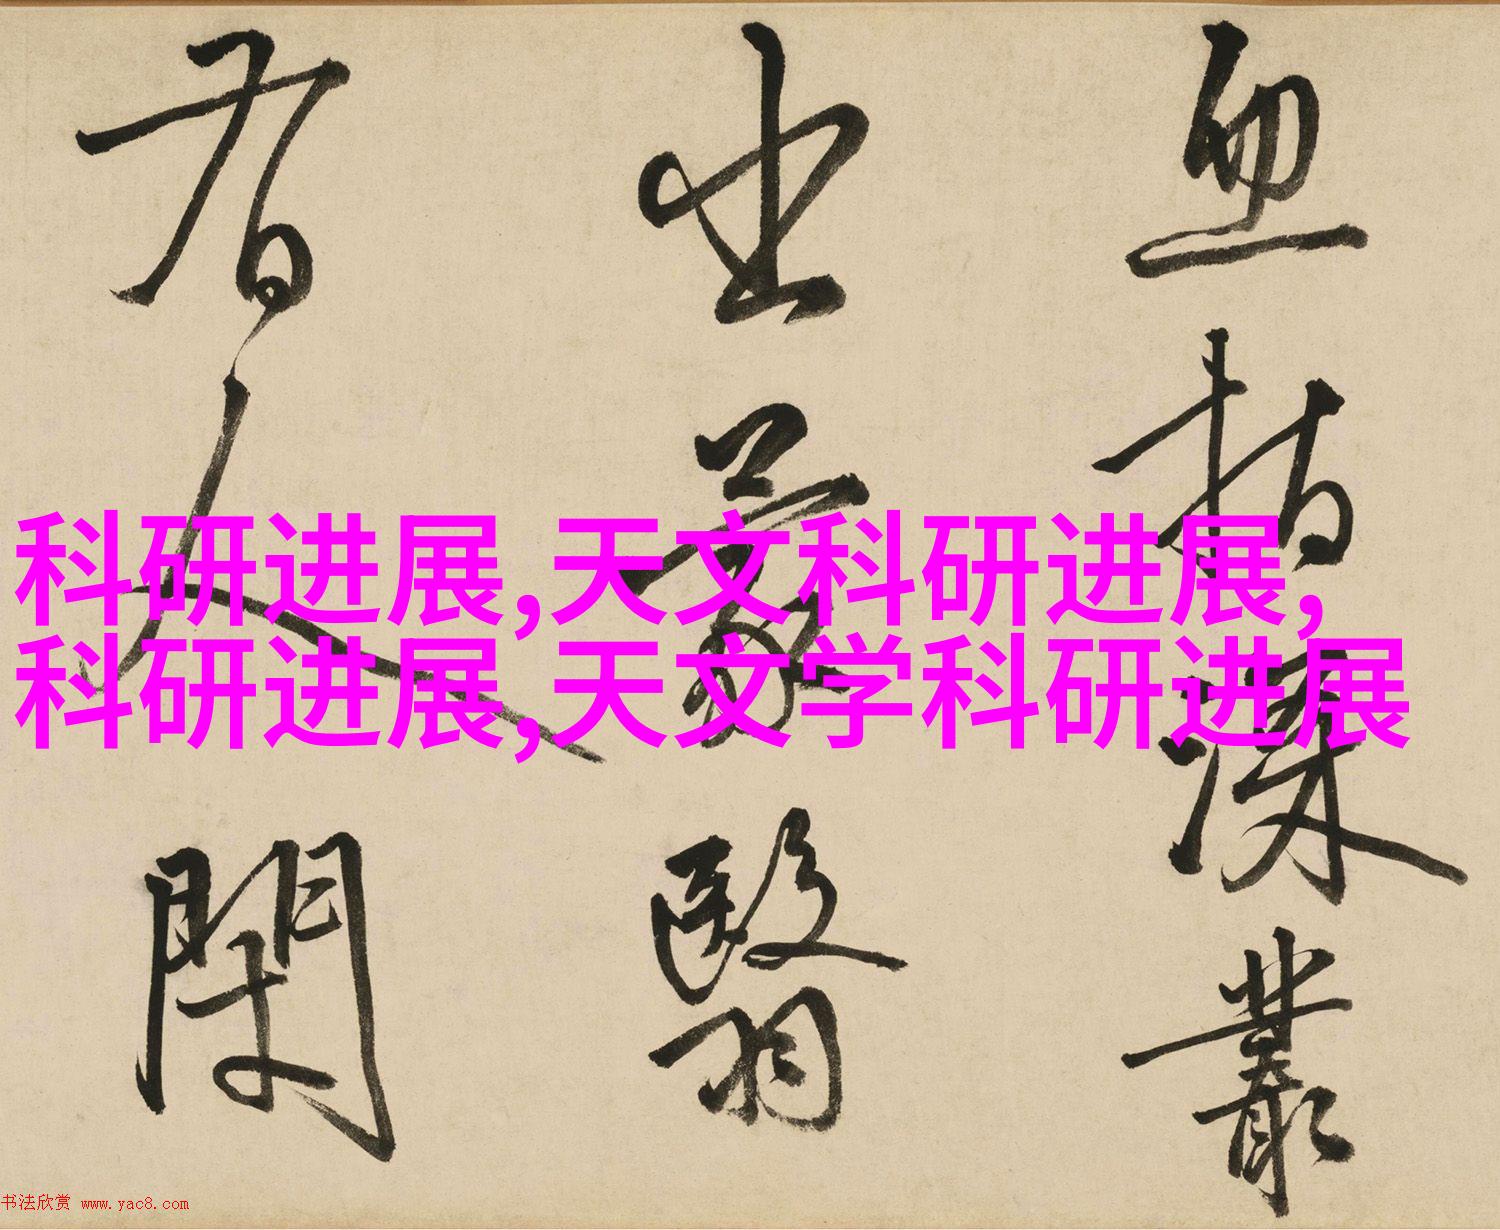 科研进展,天文科研进展,
科研进展,天文学科研进展
指深叢
出蒙翳
人
书法欣赏 www.yac8.com